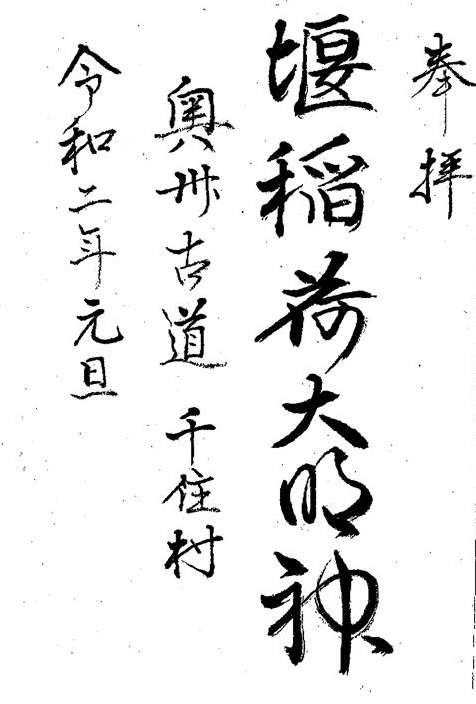 奉拝
堰稲荷大明神
奥州古道 千住村
令和二年元旦